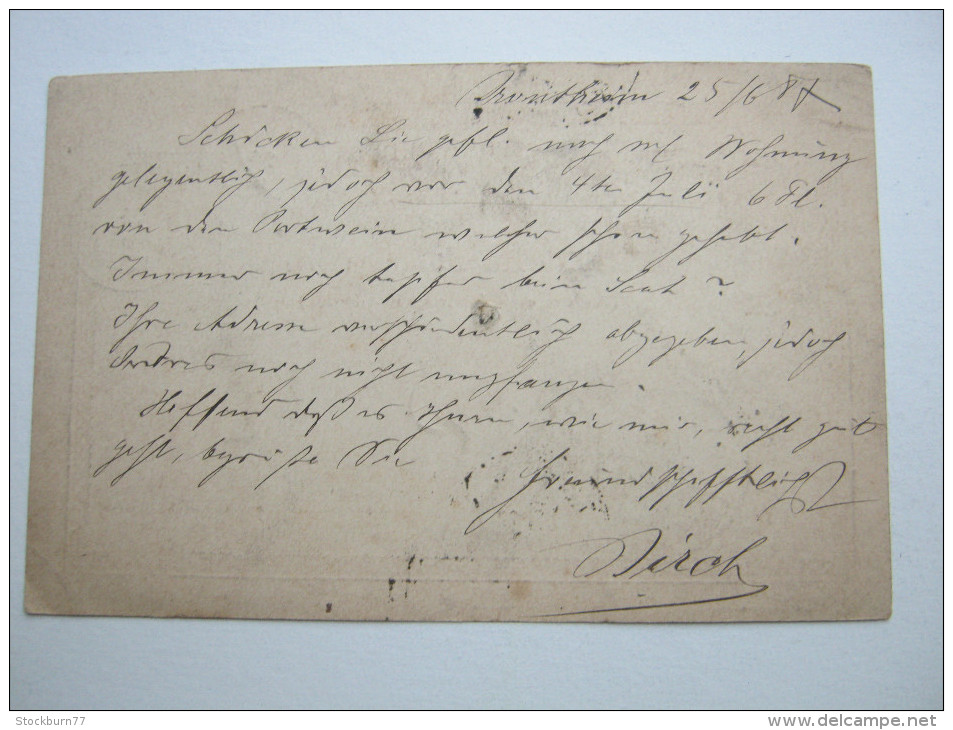 Drontheim 25/6 87
Schicken Sie gefl. nach mr Wohnung
gelegentlich, jedoch vor den 4ten Juli 6 Fl.
von den Portwein welcher schon gehabt.
Immer noch tapfer beim Scat?
Ihre Adresse verschiedentlich abgegeben, jedoch
Ordres noch nicht empfangen.
Hoffend daß es Ihnen, wie mir, recht gut
geht, begrüße Sie
freundschaftlichst
Birch
Stockburn77
www.delcampe.net